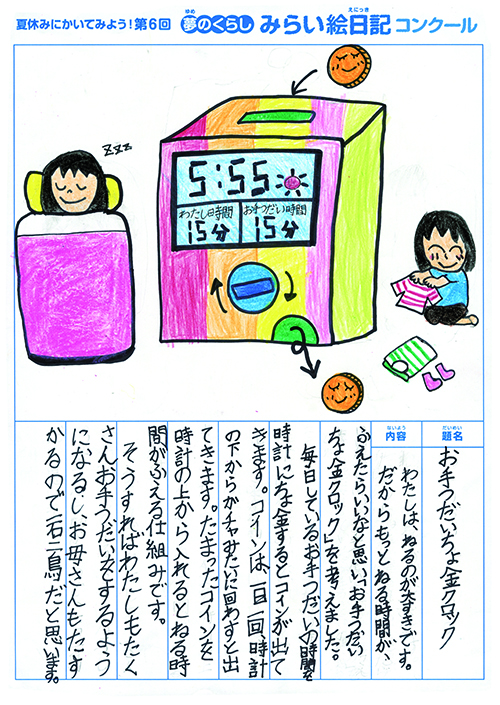 夏休みにかいてみよう!第6回 夢のくらし みらい絵日記 コンクール
ゆめ
えにっき
zzz
5:55
わたし時間
15分
お手つだい時間
15分
題名
だいめい
お手つだいちょ金クロック
内容
ないよう
わたしは、ねるのが大すきです。
だからもっとねる時間が、
ふえたらいいなと思い、「お手つだい
ちょ金クロック」を考えました。
毎日しているお手つだいの時間を
時計にちょ金するとコインが出て
きます。コインは、一日一回、時計
の下からガチャみたいに回わすと出
てきます。たまったコインを
時計の上から入れるとねる時
間がふえる仕組みです。
そうすればわたしもたく
さんお手つだいをするよう
になるし、お母さんもたす
かるので一石二鳥だと思います。